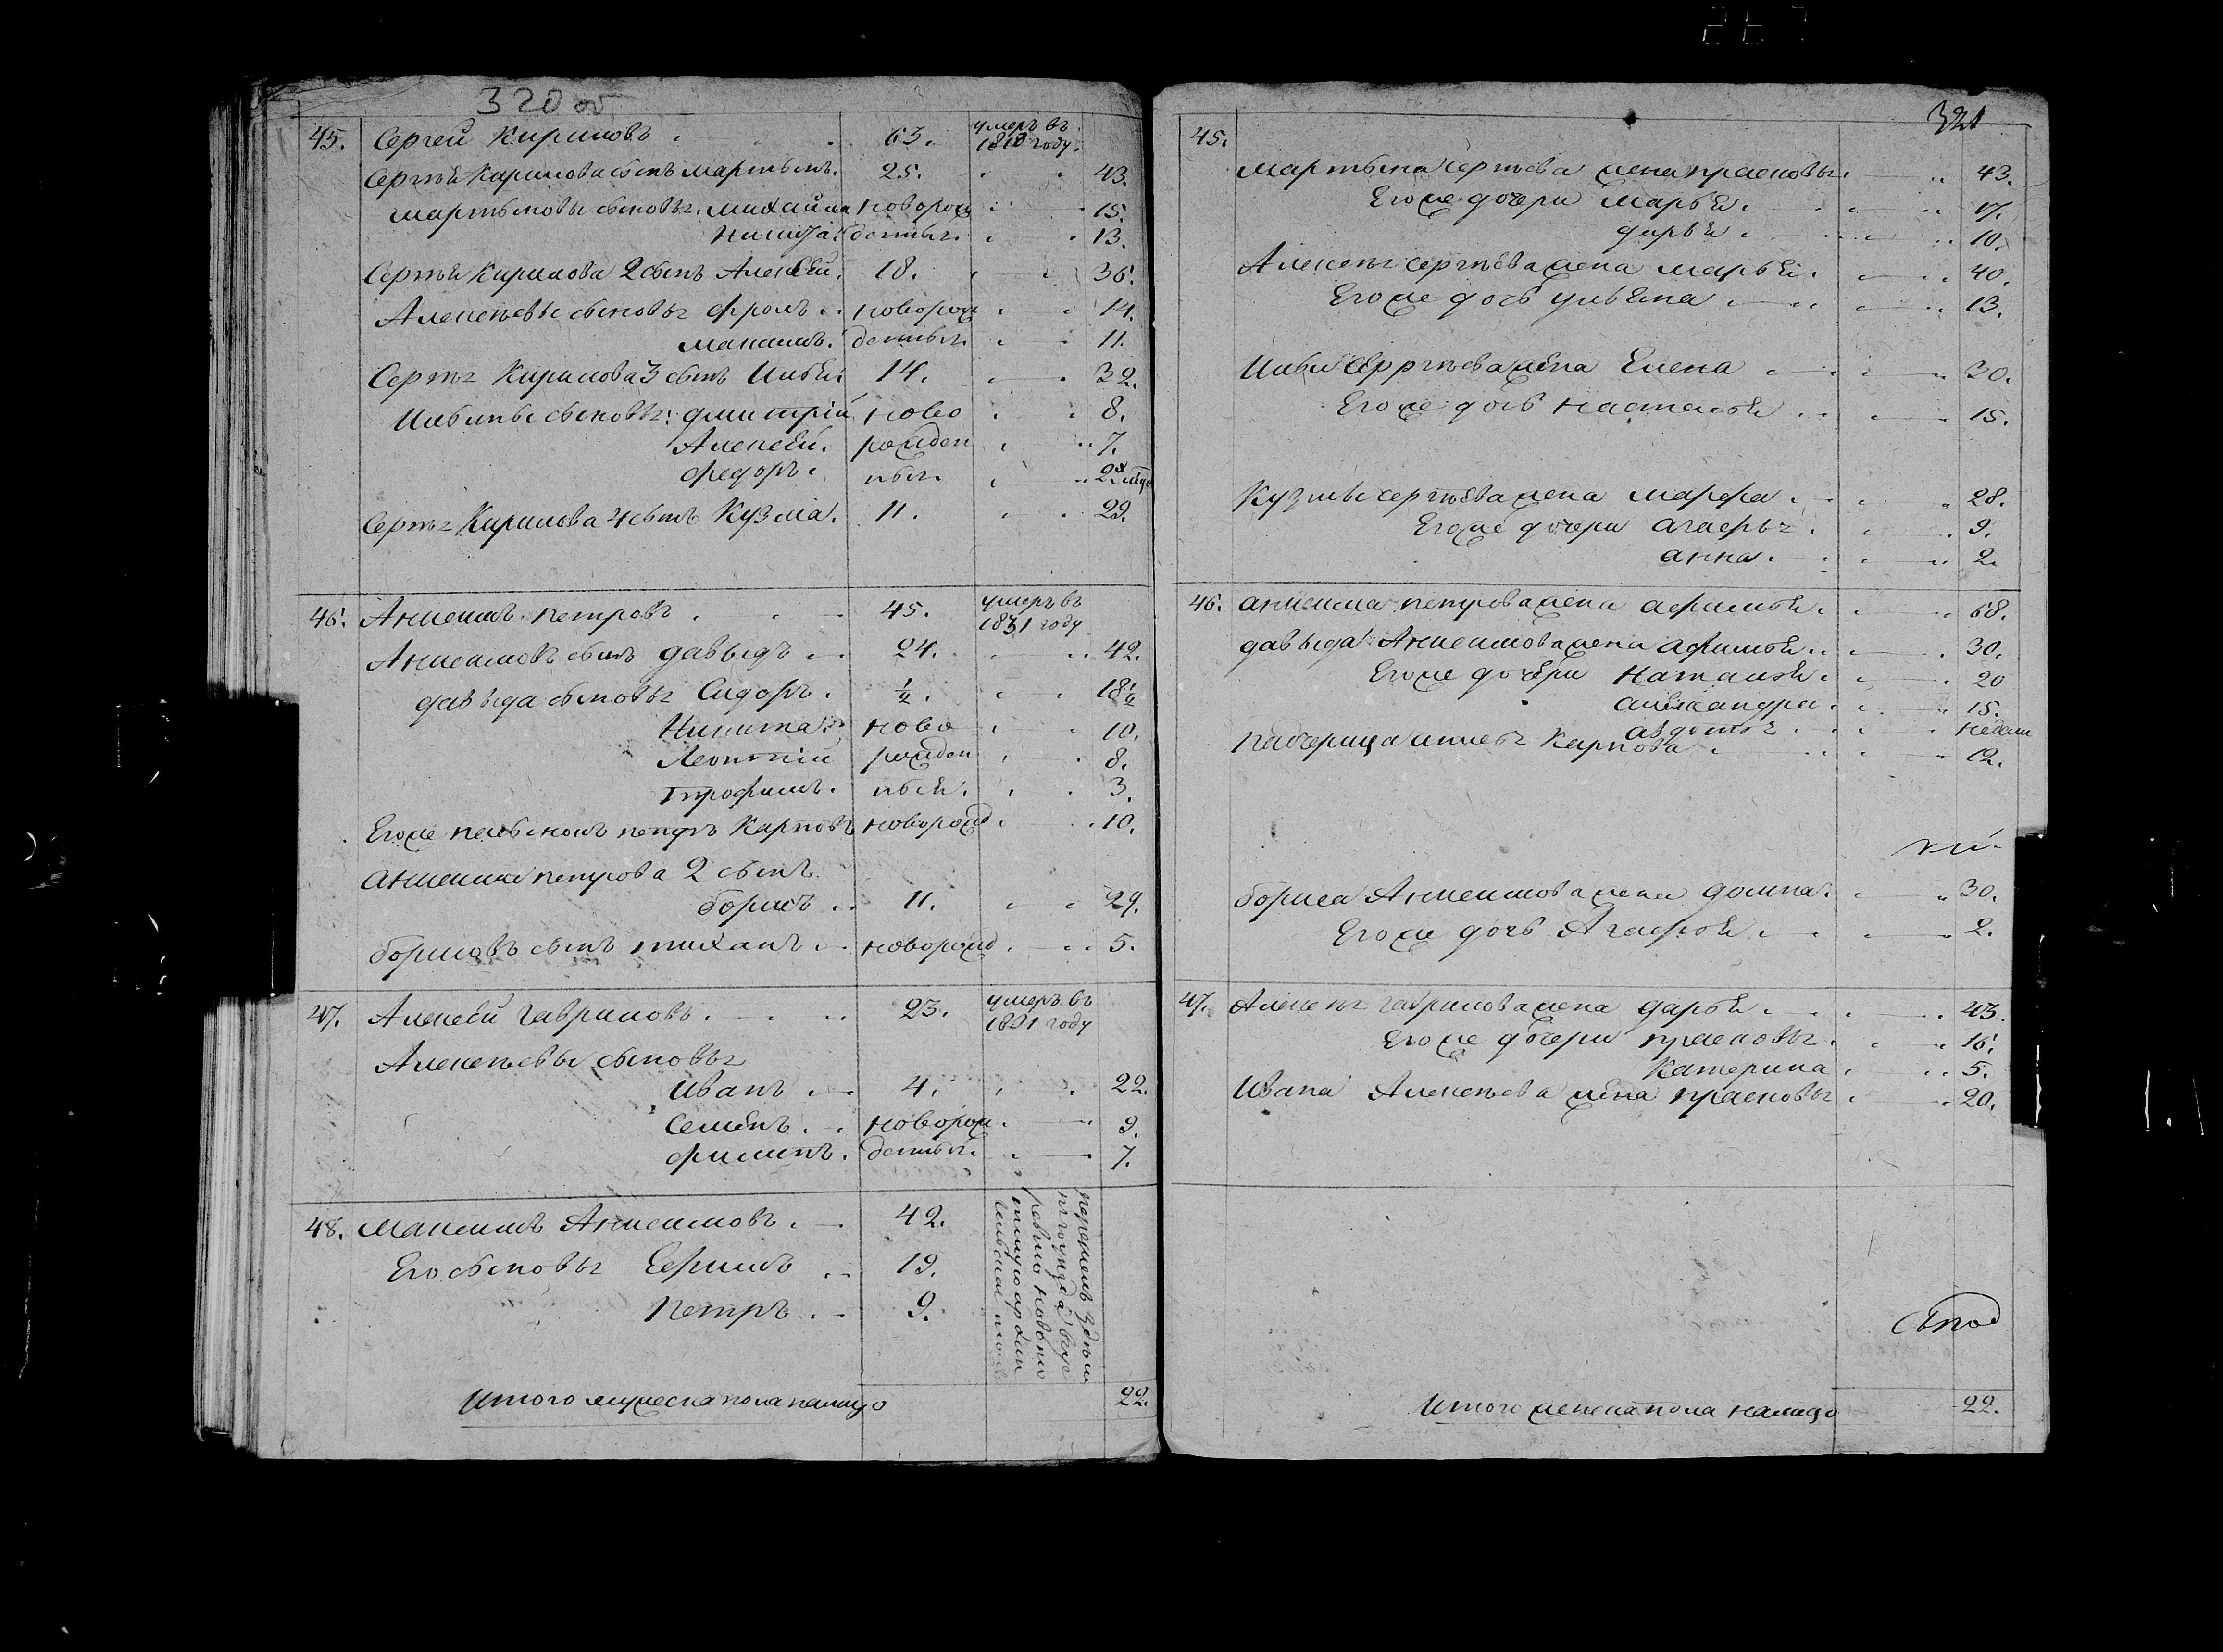 320 об
45. Сергей Кириловъ. 63. умеръ въ
1818 году.
Сергѣя Кирилова сынъ мартынъ. 25. 43.
мартыновы сыновья: михайла новорож 15.
никита. денныя. 13.
Сергѣя Кирилова 2 сынъ Алексѣй. 18. 36.
Алексѣевы сыновья фролъ новорож 14.
максимъ. денныя. 11.
Сергѣя Кирилова 3 сынъ Илья. 14. 32.
Ильины сыновья: дмитрій ново 8.
Алексѣй. рожден 7.
федоръ. ныя. 2х
Сергѣя Кирилова 4 сынъ Кузма. 11. 29.
46. Анисимъ петровъ. 45. умеръ въ
1831 году
Анисимовъ сынъ давыдъ 24. 42.
давыда сыновья Сидоръ. ½. 18½
Никита. ново 10.
Леонтій рожден 8.
трофимъ. ныя. 3.
Егоже пасынокъ петръ Карповъ новорожд 10.
анисима петрова 2 сынъ
борисъ 11. 29.
борисовъ сынъ тиханъ новорожд 5.
47. Алексѣй гавриловъ. 23. умеръ въ
1821 году
Алексѣевы сыновья
Иванъ 4. 22.
Семенъ. новорож 9.
филипъ. денныя. 7.
48. максимъ Анисимовъ. 42.
Его сыновья Ефимъ 19.
Петръ. 9.
Итого мужеска пола налицо 22.
321
45.
мартына Сергѣева жена прасковья. 43.
Егоже дочери марья. 17.
дарья. 10.
Алексѣя сергѣева жена марья. 40.
Егоже дочь ульяна 13.
Ильи сергѣева жена Елена 30.
Егоже дочь настасья 15.
Кузмы сергѣева жена марфа. 28.
Егоже дочери агафья. 9.
анна. 2.
46. анисима петрова жена афимья. 68.
давыда Анисимова жена афимья. 30.
Егоже дочери Наталья. 20
александра. 15.
авдотья недели
Падчерица Карпова 12.
бориса Анисимова жена домна. 30.
Егоже дочь Агафья. 2.
47. Алексѣя гаврилова жена дарья. 43.
Егоже дочери прасковья. 16.
Катерина 5.
Ивана Алексѣева жена прасковья 20.
Итого женска пола налицо 22.